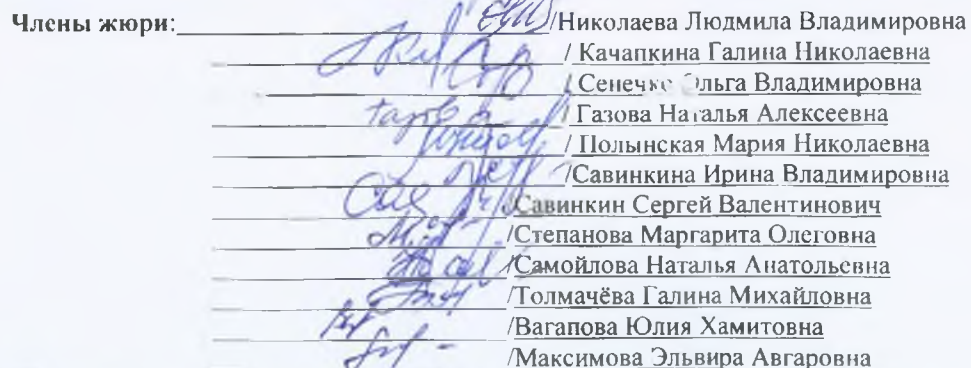 Члены жюри: /Николаева Людмила Владимировна
/ Качапкина Галина Николаевна
/ Сенечко Ольга Владимировна
/ Газова Наталья Алексеевна
/ Полынская Мария Николаевна
/Савинкина Ирина Владимировна
/Савинкин Сергей Валентинович
/Степанова Маргарита Олеговна
/Самойлова Наталья Анатольевна
/Толмачёва Галина Михайловна
/Вагапова Юлия Хамитовна
/Максимова Эльвира Авгаровна